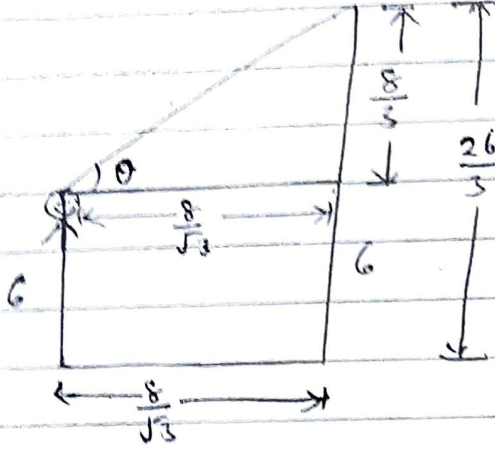 8/3
26/3
θ
8/√3
6
6
8/√3